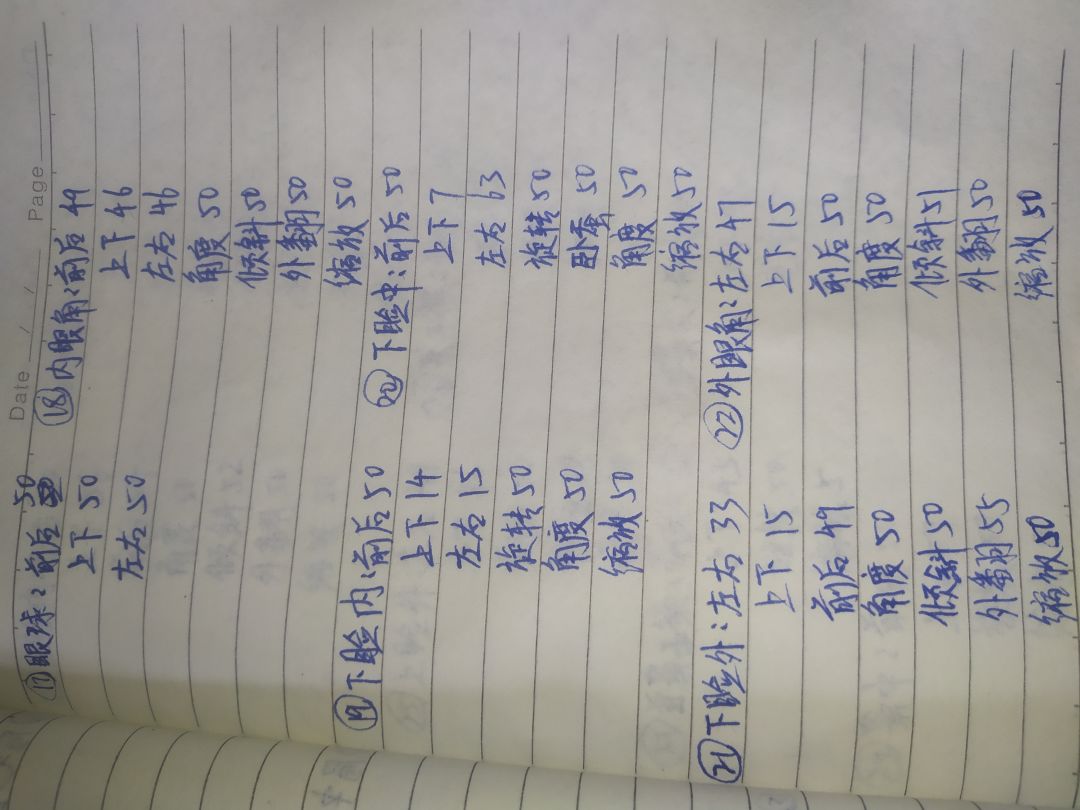 Date / / Page
⑰眼球：前后 50
上下 50
左右 50
⑱内眼角：前后 49
上下 46
左右 46
角度 50
倾斜 50
外翻 50
缩放 50
⑲下睑内：前后 50
上下 14
左右 15
旋转 50
角度 50
缩放 50
⑳下睑中：前后 50
上下 7
左右 63
旋转 50
卧蚕 50
角度 50
缩放 50
㉑下睑外：左右 33
上下 15
前后 49
角度 50
倾斜 50
外翻 55
缩放 50
㉒外眼角：左右 47
上下 15
前后 50
角度 50
倾斜 51
外翻 50
缩放 50